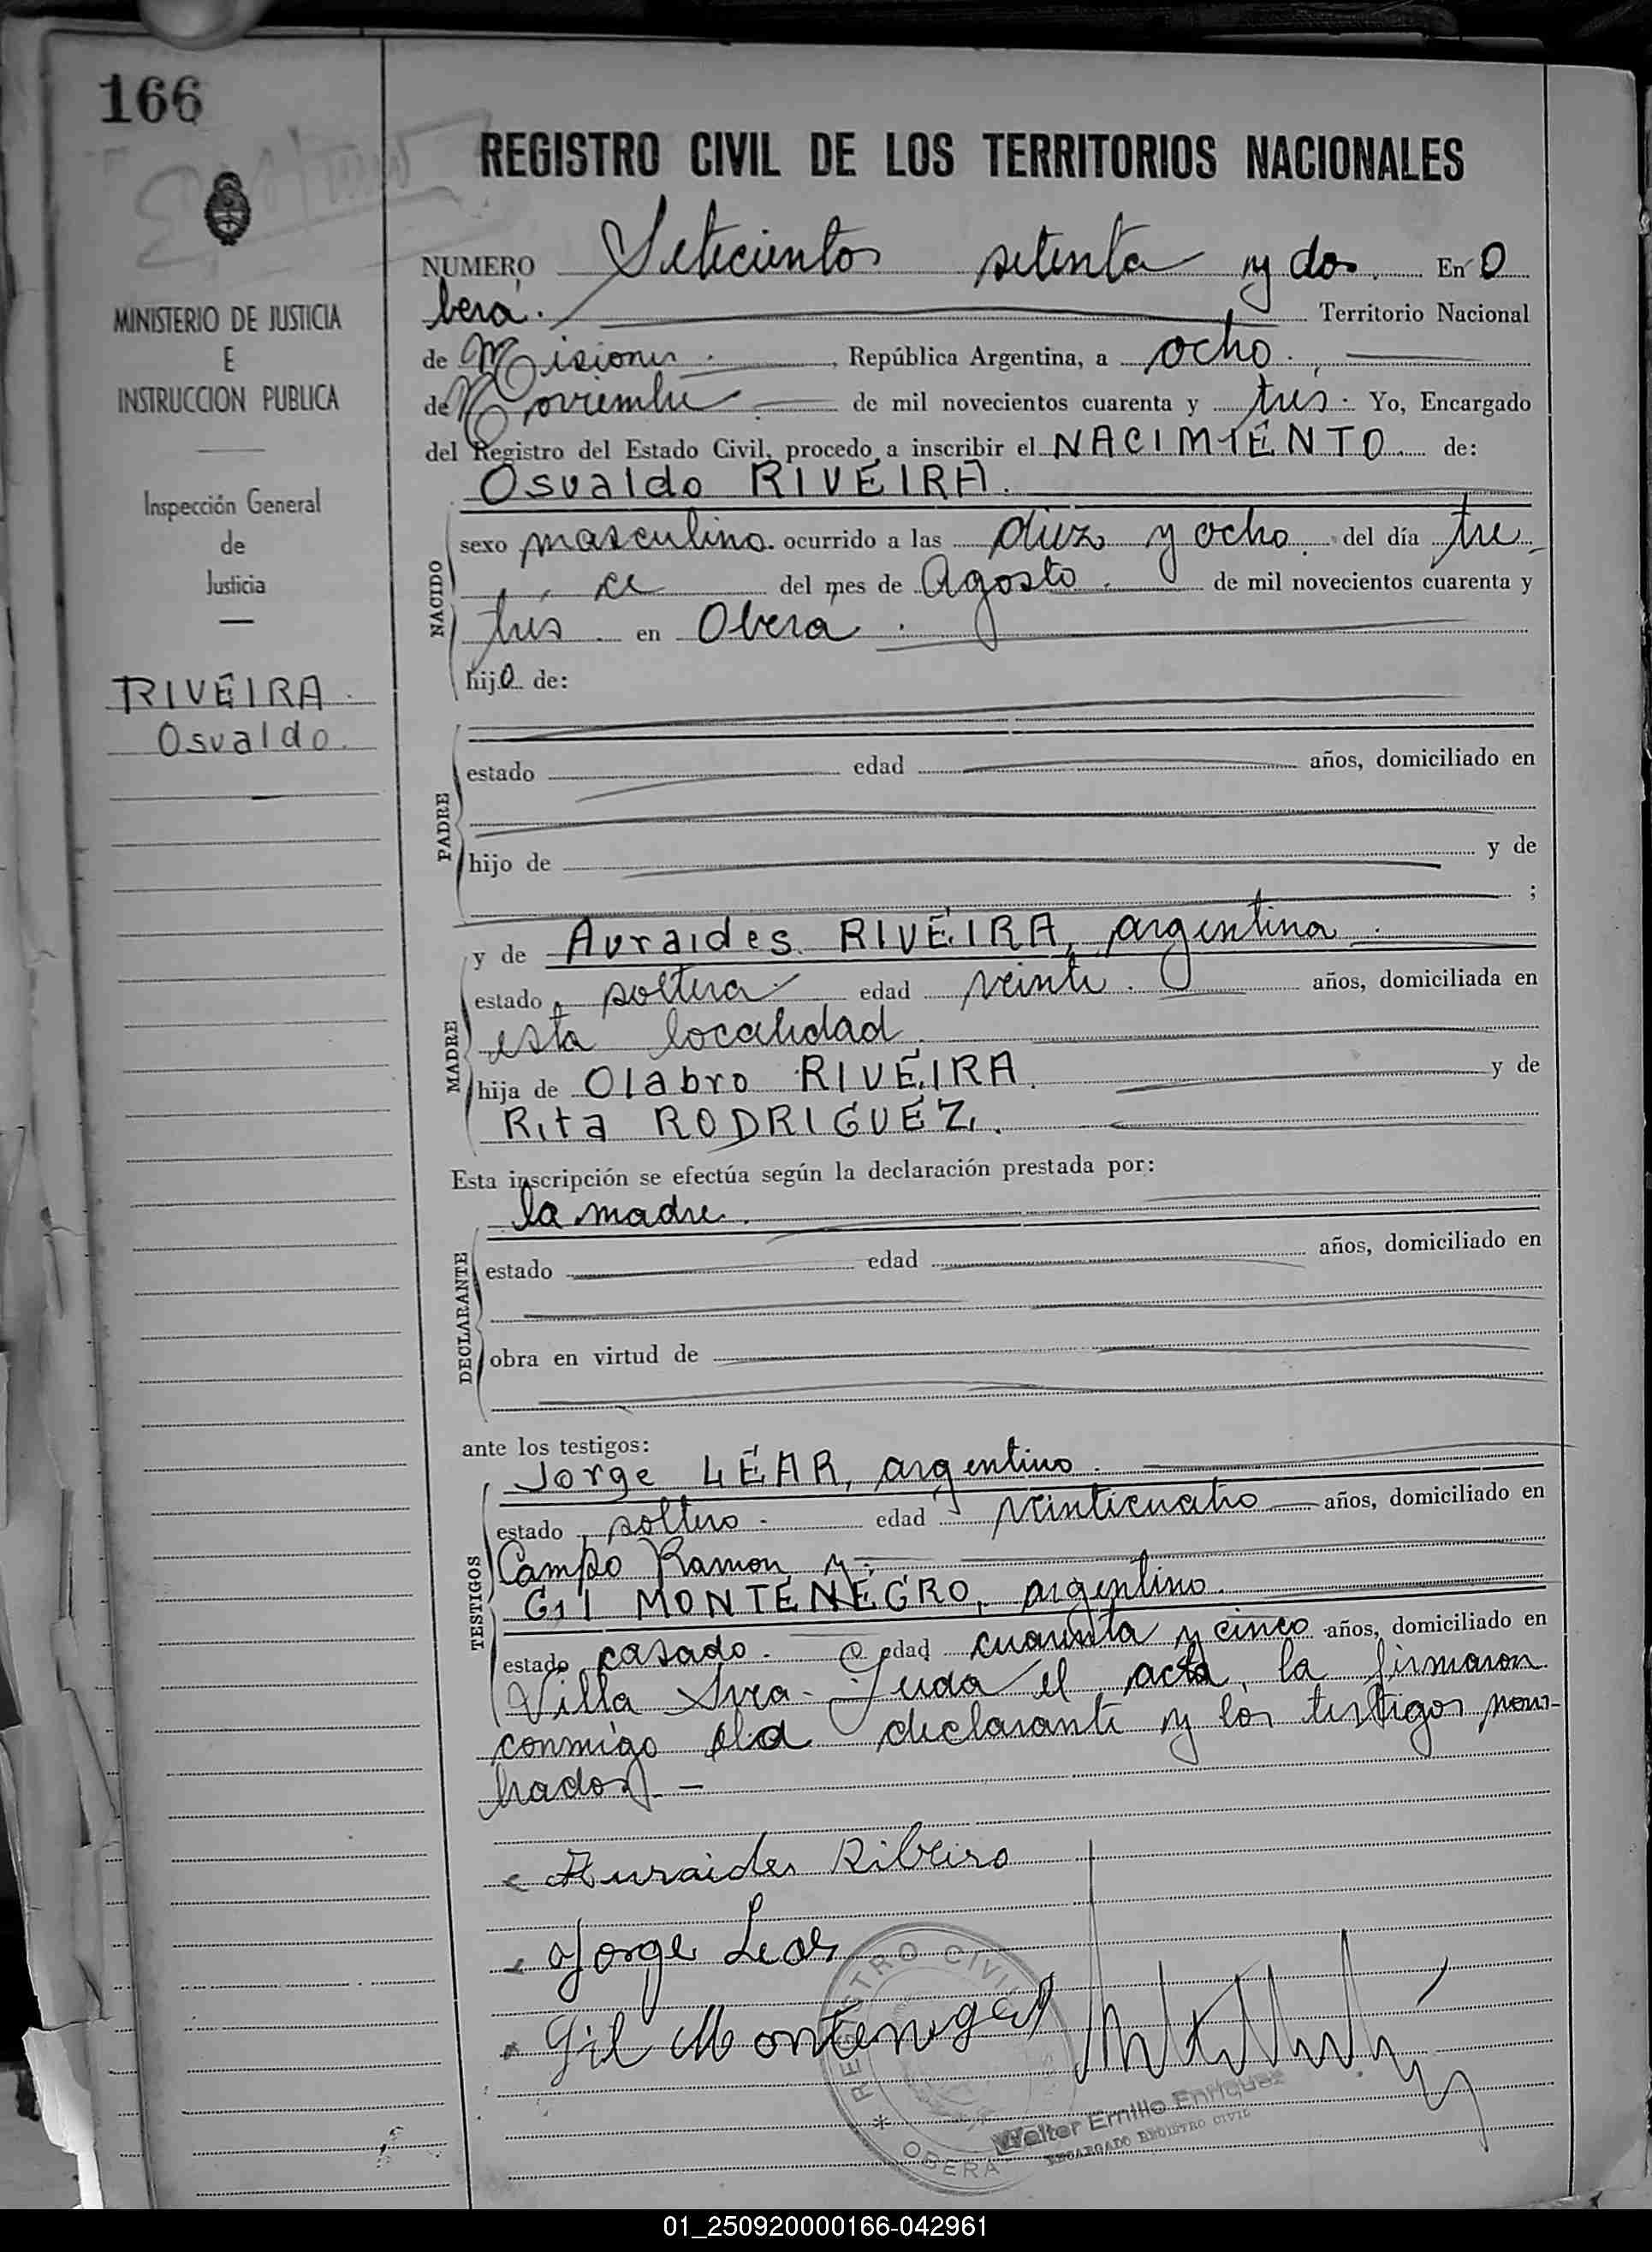 166
REGISTRO CIVIL DE LOS TERRITORIOS NACIONALES
NUMERO Setecientos setenta y dos. En O
berá. Territorio Nacional
de Misiones. , República Argentina, a ocho.
de Noviembre de mil novecientos cuarenta y tres. Yo, Encargado
del Registro del Estado Civil, procedo a inscribir el NACIMIENTO de:
Osvaldo RIVEIRA.
MINISTERIO DE JUSTICIA
E
INSTRUCCION PUBLICA
Inspección General
de
Justicia
RIVEIRA
Osvaldo.
NACIDO
sexo masculino. ocurrido a las diez y ocho. del día tre-
ce del mes de Agosto. de mil novecientos cuarenta y
tres. en Obera.
hijo de:
PADRE
estado edad años, domiciliado en
hijo de y de
;
MADRE
y de Auraides RIVEIRA, argentina.
estado soltera edad veinte. años, domiciliada en
esta localidad.
hija de Olabro RIVEIRA. y de
Rita RODRIGUEZ.
Esta inscripción se efectúa según la declaración prestada por:
la madre.
DECLARANTE
estado edad años, domiciliado en
obra en virtud de
ante los testigos:
TESTIGOS
Jorge LEAR, argentino.
estado soltero. edad veinticuatro años, domiciliado en
Campo Ramon y:
Gil MONTENEGRO, argentino.
estado casado. edad cuarenta y cinco años, domiciliado en
Villa Svea. Leida el acta, la firmaron
conmigo la declarante y los testigos nom-
brados. -
Auraides Ribeiro
Jorge Lear
Gil Montenegro
REGISTRO CIVIL
* OBERA
Walter Emilio Enriquez
ENCARGADO REGISTRO CIVIL
01_250920000166-042961